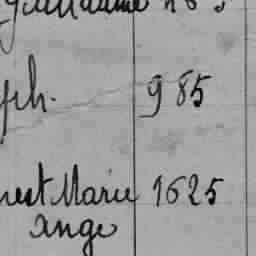 Guillaume
ph. 985
nest Marie 1625
Ange